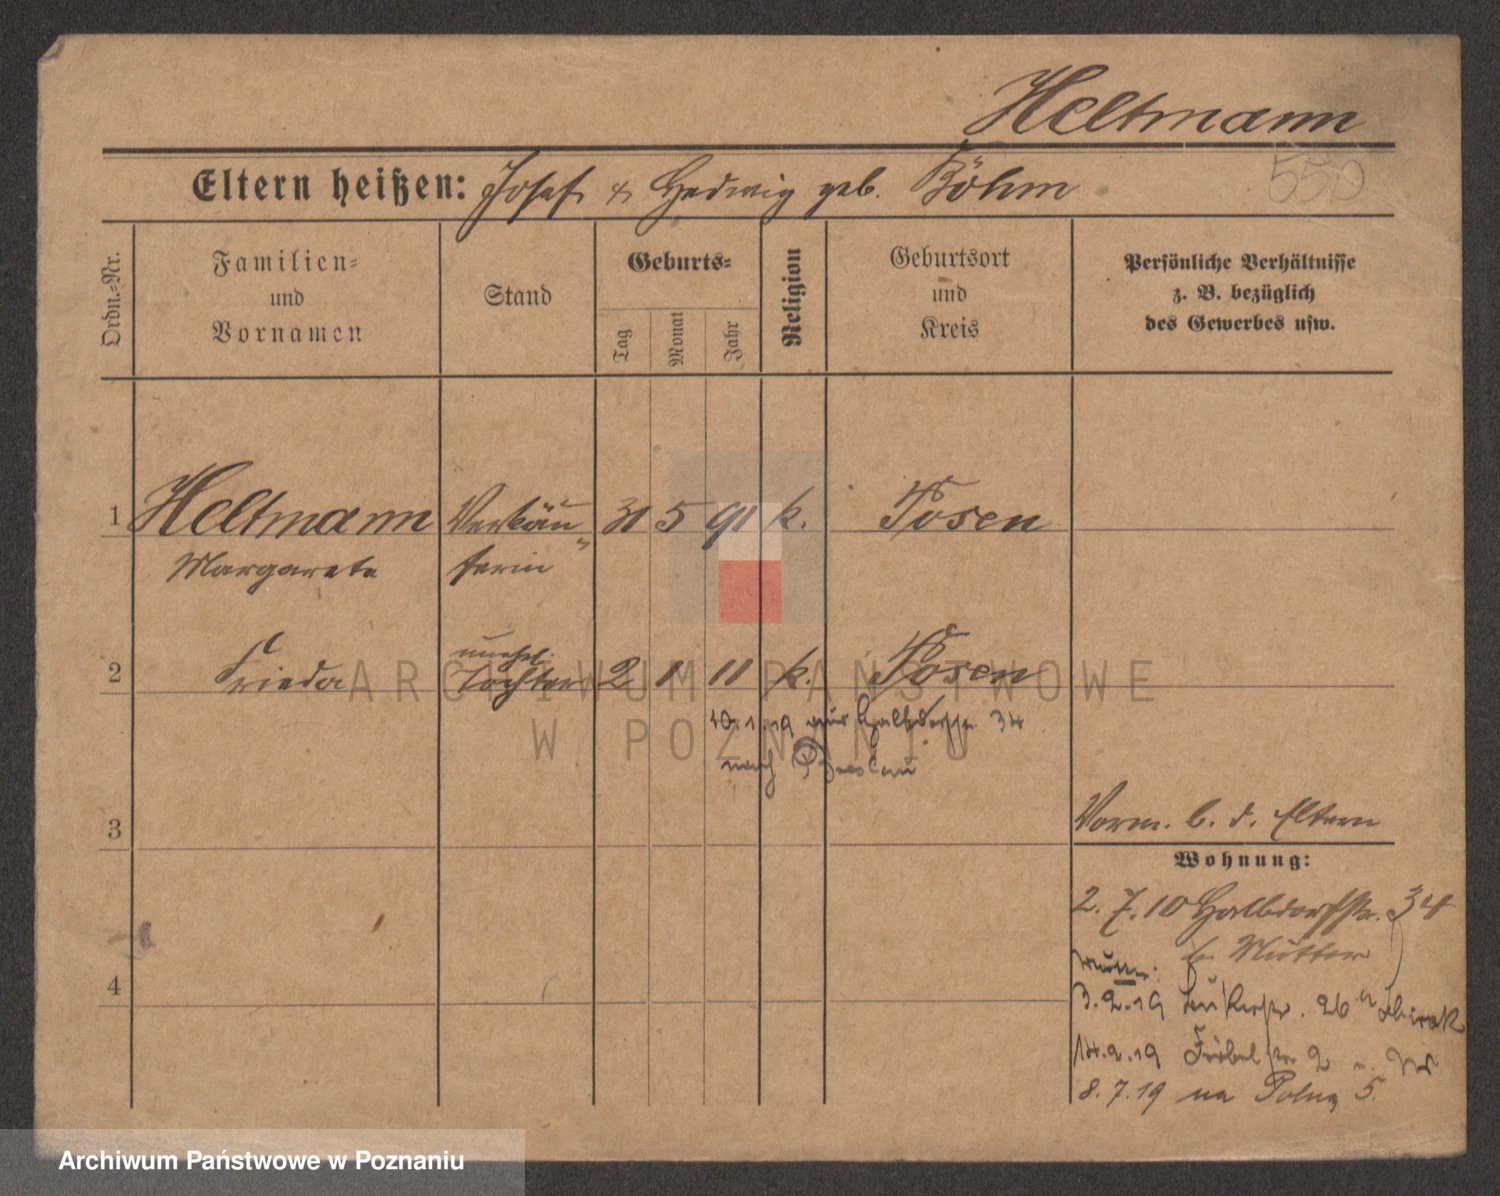 Heltmann
550
Eltern heißen: Josef & Hedwig geb. Böhm
Ordn.=Nr.
Familien=
und
Vornamen
Stand
Geburts=
Tag
Monat
Jahr
Religion
Geburtsort
und
Kreis
Persönliche Verhältnisse
z. B. bezüglich
des Gewerbes usw.
1 Heltmann Verkäu„ 31 5 91 k. Posen
Margarete ferin
unehel.
2 Frieda Tochter 2 1 11 k. Posen
10.1.19 aus Halbdorfstr. 34
nach Breslau
3
Vorm. b. d. Eltern
Wohnung:
2.7.10 Halbdorfstr. 34
b. Mutter
4
3.2.19 26
14.2.19 Fröbelstr 2
8.7.19 na Polną 5.
ARCHIWUM PAŃSTWOWE
W POZNANIU
Archiwum Państwowe w Poznaniu